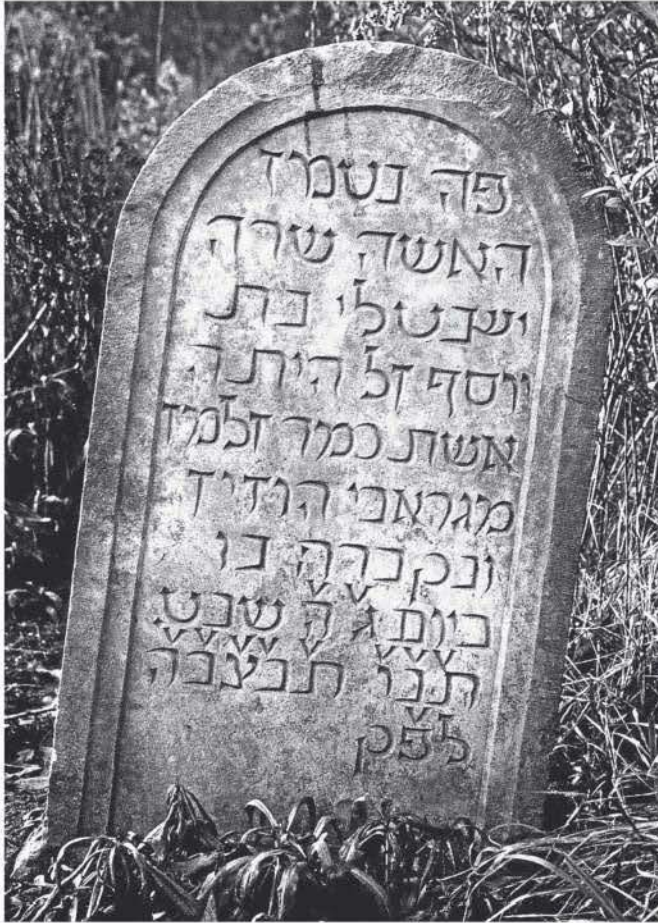 פה נטמן
האשה שרה
יטטלי בת
יוסף זל היתה
אשת כמר זלמן
מגראבי הודיד
ונקברה בו
ביום ג ה שבט
תנו תבצבה
לפק